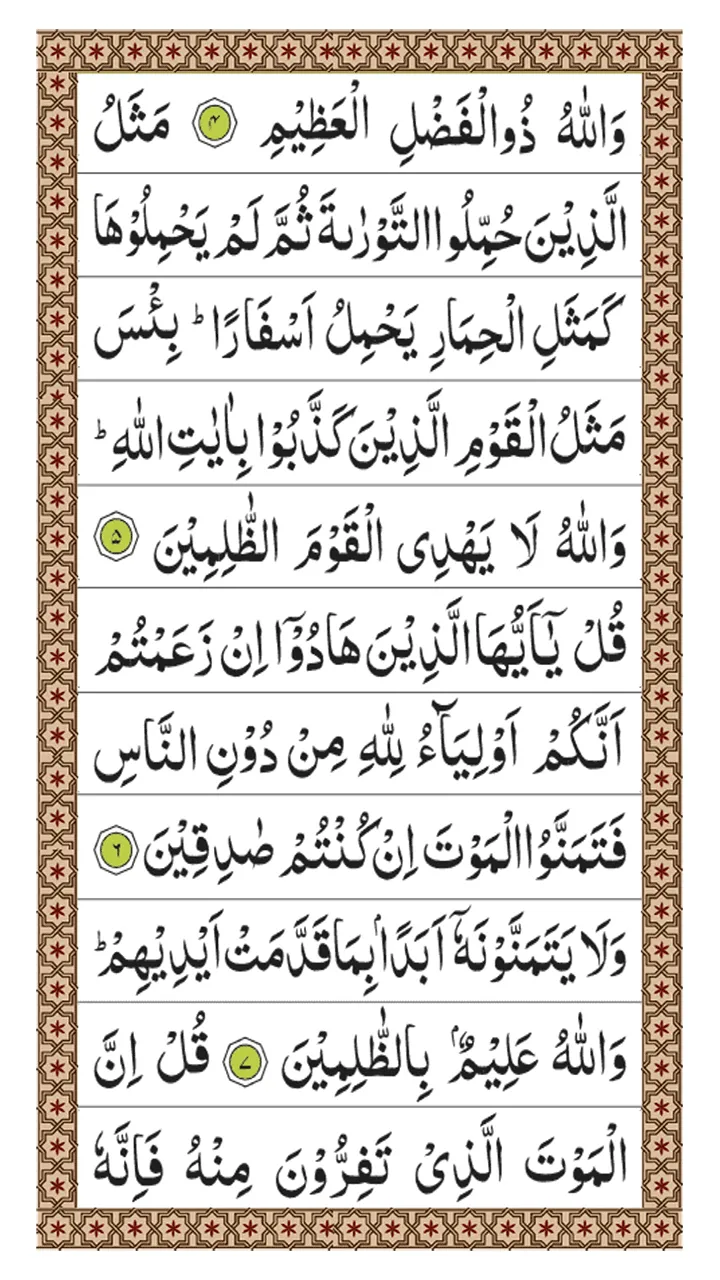 وَاللّٰهُ ذُوالْفَضْلِ الْعَظِیْمِ ۴ مَثَلُ
الَّذِیْنَ حُمِّلُوا التَّوْرٰىةَ ثُمَّ لَمْ یَحْمِلُوْهَا
كَمَثَلِ الْحِمَارِ یَحْمِلُ اَسْفَارًا ؕ بِئْسَ
مَثَلُ الْقَوْمِ الَّذِیْنَ كَذَّبُوْا بِاٰیٰتِ اللّٰهِ ؕ
وَاللّٰهُ لَا یَهْدِی الْقَوْمَ الظّٰلِمِیْنَ ۵
قُلْ یٰۤاَیُّهَا الَّذِیْنَ هَادُوْۤا اِنْ زَعَمْتُمْ
اَنَّكُمْ اَوْلِیَآءُ لِلّٰهِ مِنْ دُوْنِ النَّاسِ
فَتَمَنَّوُا الْمَوْتَ اِنْ كُنْتُمْ صٰدِقِیْنَ ۶
وَلَا یَتَمَنَّوْنَهٗۤ اَبَدًۢا بِمَا قَدَّمَتْ اَیْدِیْهِمْ ؕ
وَاللّٰهُ عَلِیْمٌۢ بِالظّٰلِمِیْنَ ۷ قُلْ اِنَّ
الْمَوْتَ الَّذِیْ تَفِرُّوْنَ مِنْهُ فَاِنَّهٗ